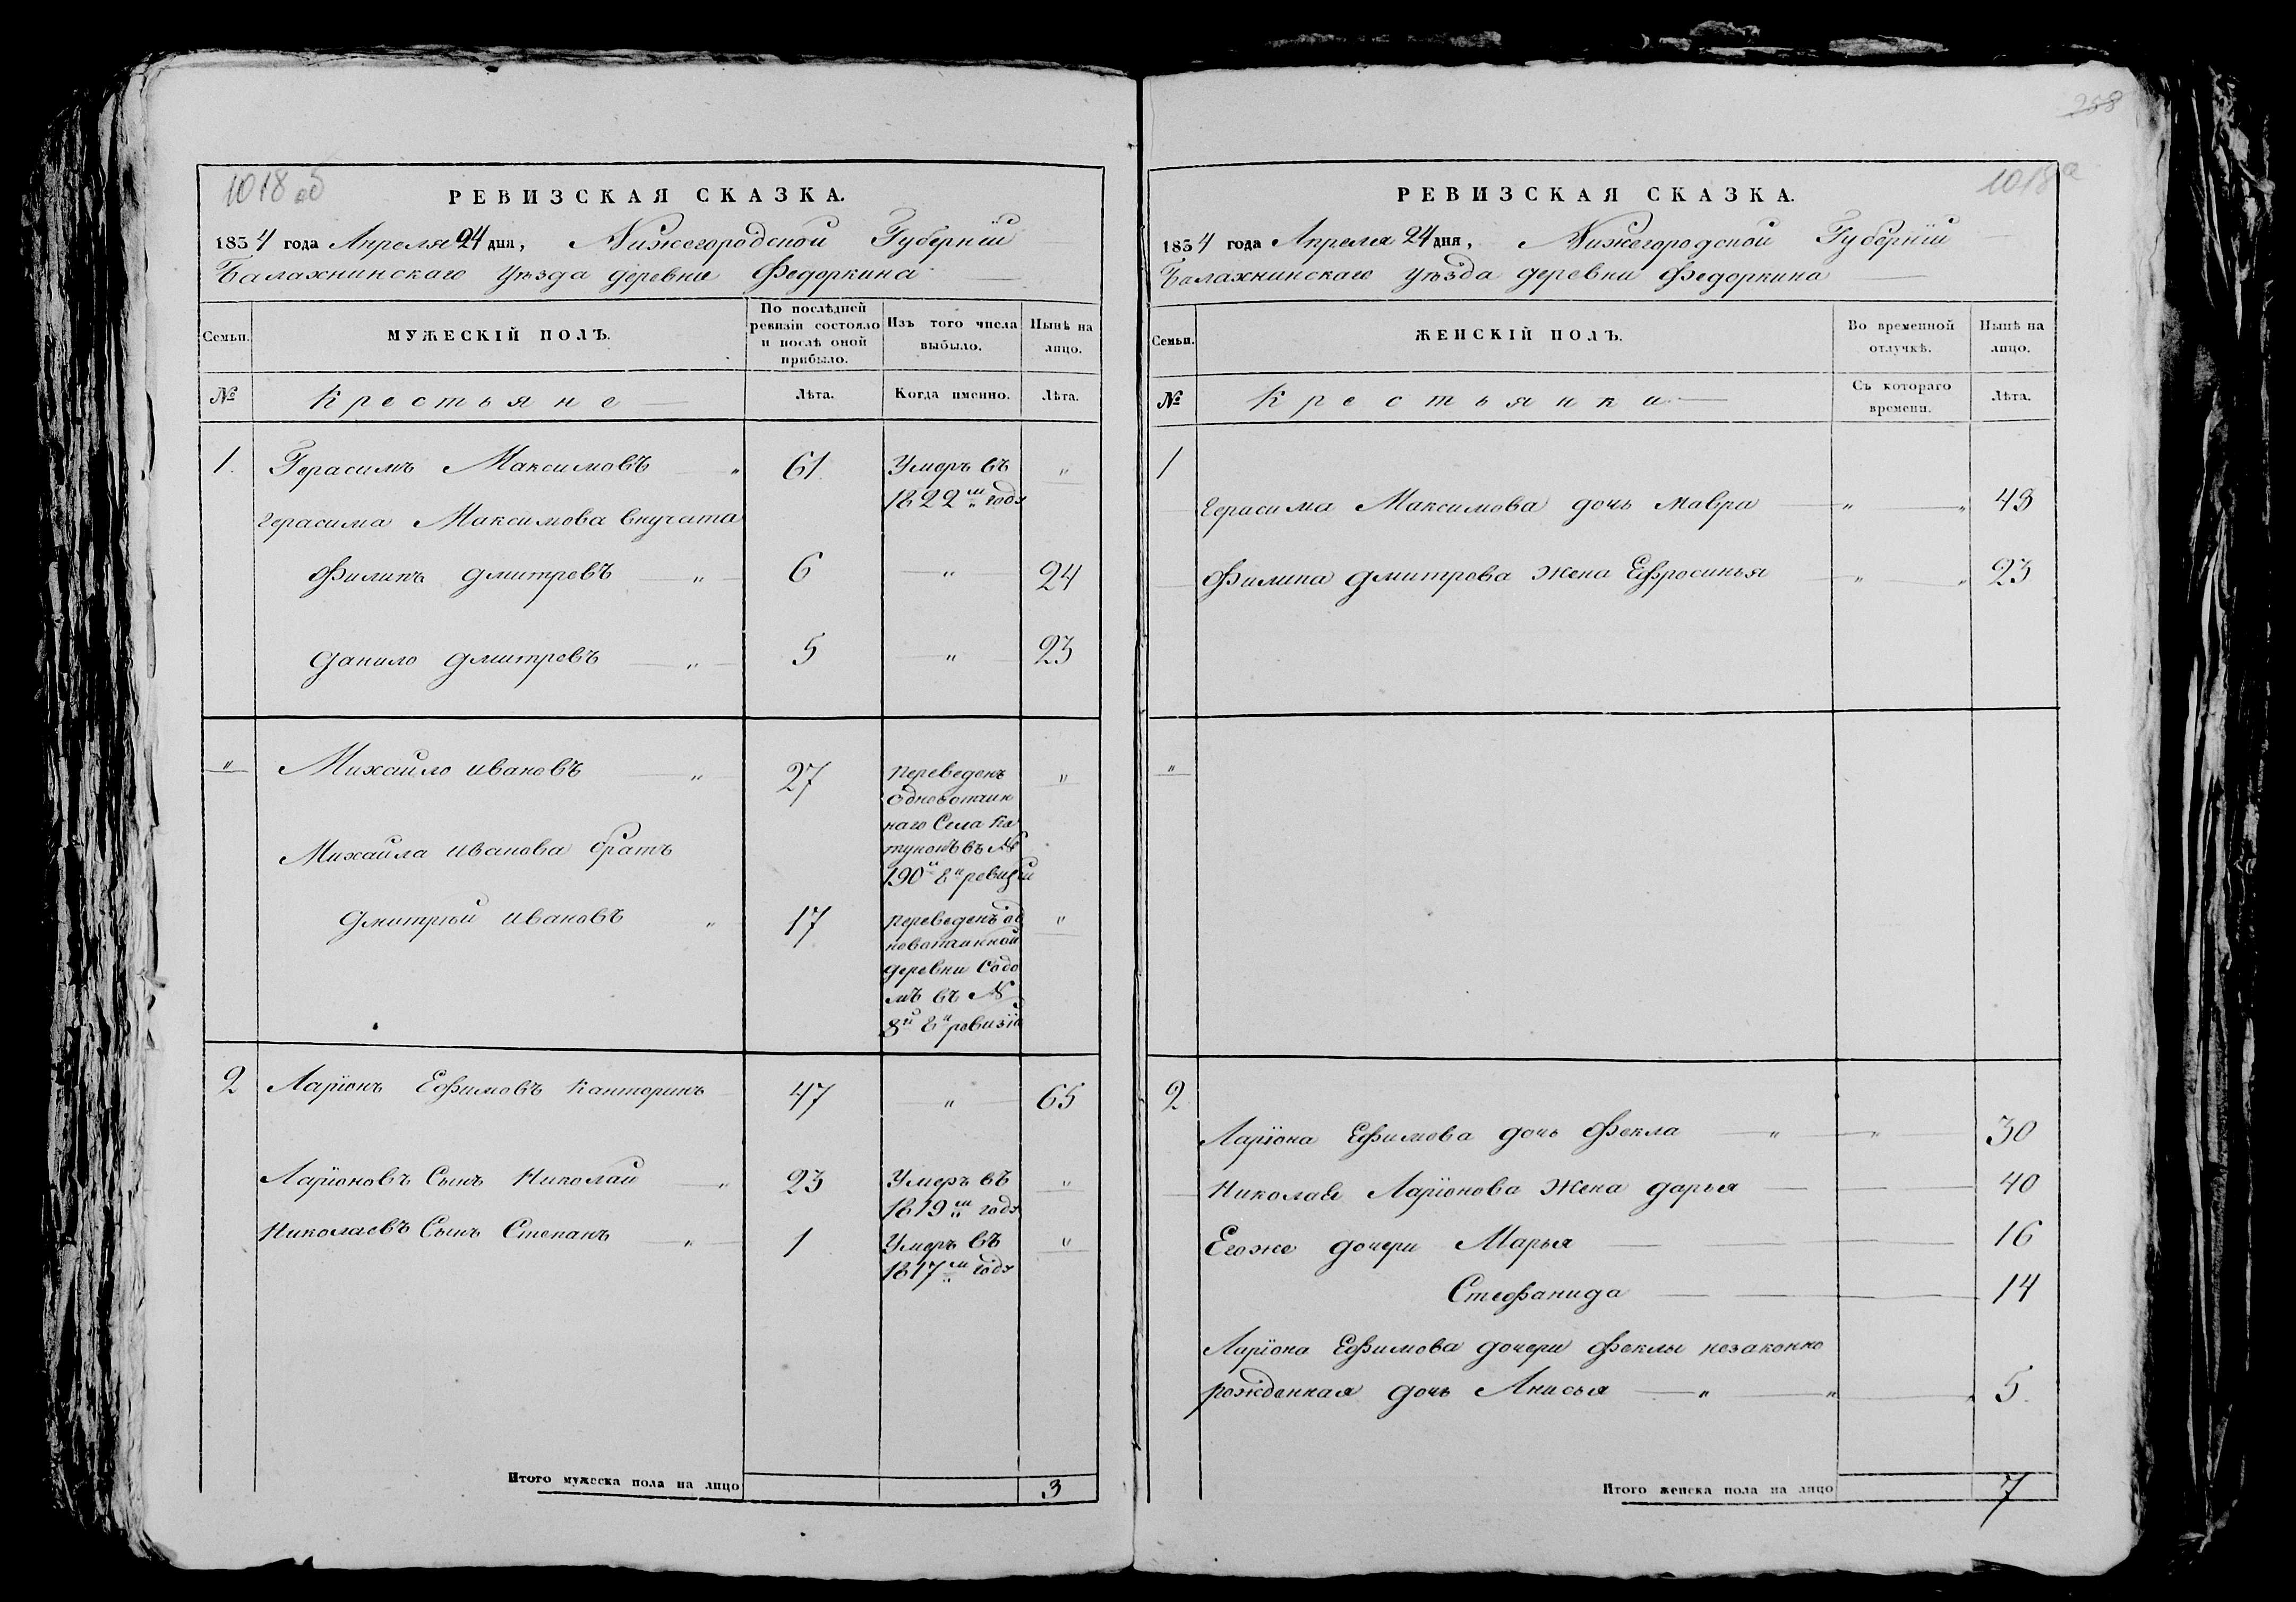 1018 об
РЕВИЗСКАЯ СКАЗКА.
1834 года Апреля 24 дня, Нижегородской Губернїи
Балахнинскаго уѣзда деревни Федоркина
Семьи.
МУЖЕСКІЙ ПОЛЪ.
По послѣдней ревизіи состояло и послѣ оной прибыло.
Изъ того числа выбыло.
Нынѣ на лицо.
№
Крестьяне
Лѣта.
Когда именно.
Лѣта.
1. Герасимъ Максимовъ " 61 Умеръ въ "
1822м годѵ
Герасима Максимова внучата
Филипъ Дмитревъ " 6 " 24
Данило Дмитревъ " 5 " 23
" Михаило Ивановъ " 27 Переведенъ "
одновотчин
наго Села Ка
Михаила Иванова братъ
тунокъ въ №
190й 8й ревизїи
Дмитрей Ивановъ " 17 переведенъ од "
новотчинной
деревни Содо
мъ въ №
8й 8й ревизїи
2 Ларїонъ Ефимовъ Канторинъ 47 " 65
Ларїоновъ Сынъ Николай " 23 Умеръ въ "
1819м годѵ
Николаевъ Сынъ Степанъ " 1 Умеръ въ "
1817м годѵ
Итого мужеска пола на лицо 3
258
1018а
РЕВИЗСКАЯ СКАЗКА.
1834 года Апреля 24 дня, Нижегородской Губернїи
Балахнинскаго уѣзда деревни Федоркина
Семьи.
ЖЕНСКІЙ ПОЛЪ.
Во временной отлучкѣ.
Нынѣ на лицо.
№
Крестьянки
Съ котораго времени.
Лѣта.
1
Герасима Максимова дочь Мавра " " 43
Филипа Дмитрева Жена Ефросинья " " 23
"
2
Ларїона Ефимова дочь Фекла " " 30
Николая Ларїонова Жена Дарья 40
Егоже дочери Марья 16
Стефанида 14
Ларїона Ефимова дочери Феклы незаконно
рожденная дочь Анисья " " 5.
Итого женска пола на лицо 7